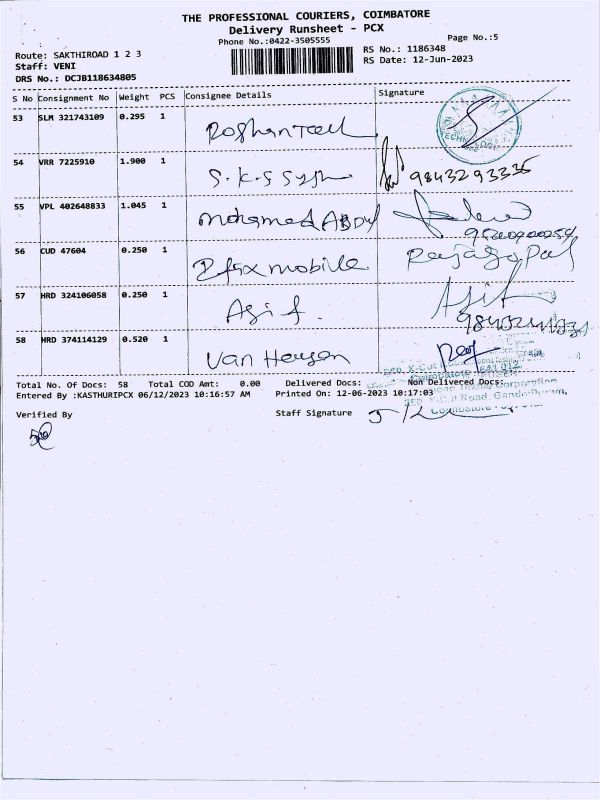 THE PROFESSIONAL COURIERS, COIMBATORE
Delivery Runsheet - PCX
Phone No.:0422-3505555
Page No.:5
Route: SAKTHIROAD 1 2 3
RS No.: 1186348
Staff: VENI
RS Date: 12-Jun-2023
DRS No.: DCJB118634805
S No Consignment No Weight PCS Consignee Details Signature
53 SLM 321743109 0.295 1
54 VRR 7225910 1.900 1 9843293335
55 VPL 402648833 1.045 1 Mohamed Abdul
56 CUD 47604 0.250 1 mobile Rajagopal
57 HRD 324106058 0.250 1 Asif. Asif
58 HRD 374114129 0.520 1 Van Heusen
Total No. Of Docs: 58 Total COD Amt: 0.00 Delivered Docs: Non Delivered Docs:
Entered By :KASTHURIPCX 06/12/2023 10:16:57 AM Printed On: 12-06-2023 10:17:03
Verified By Staff Signature